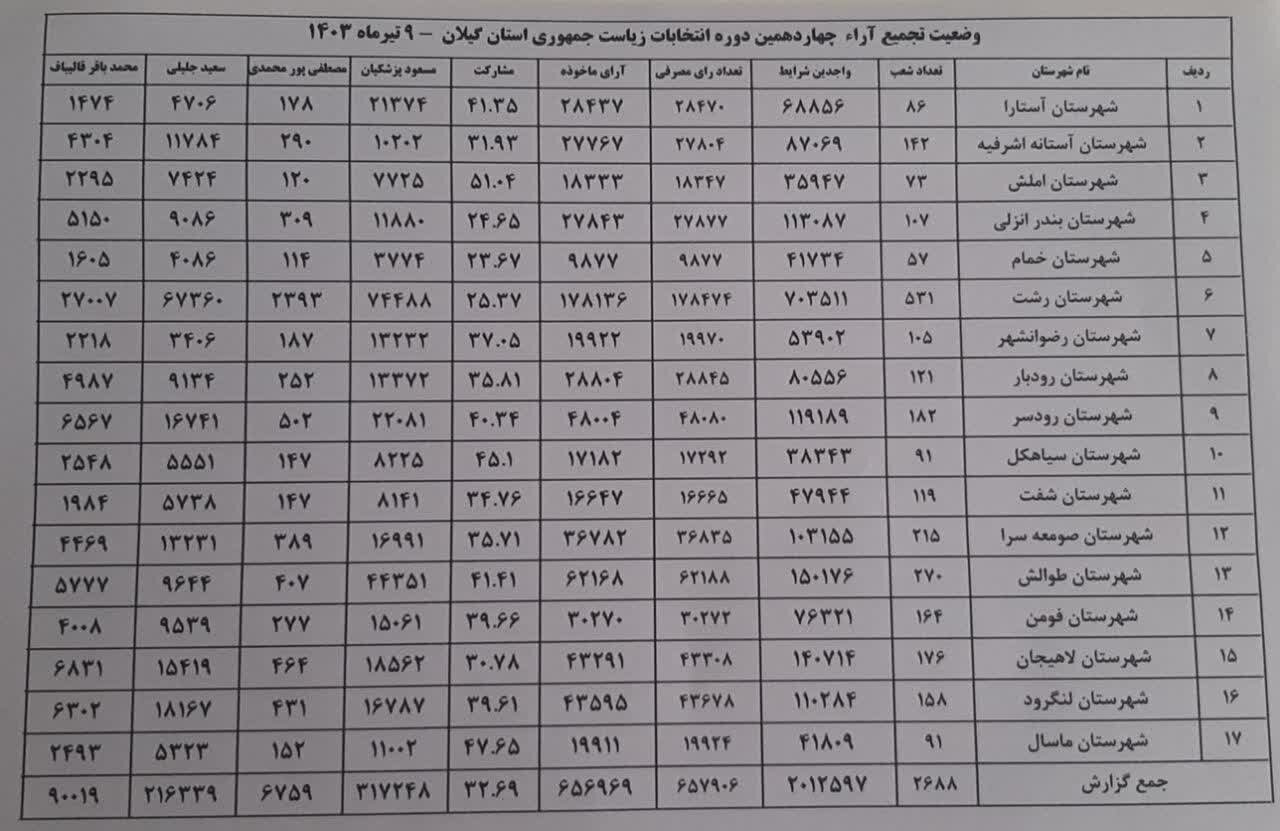 وضعیت تجمیع آراء چهاردهمین دوره انتخابات ریاست جمهوری استان گیلان - ۹ تیرماه ۱۴۰۳
ردیف نام شهرستان تعداد شعب واجدین شرایط تعداد رای مصرفی آرای ماخوذه مشارکت مسعود پزشکیان مصطفی پور محمدی سعید جلیلی محمد باقر قالیباف
۱ شهرستان آستارا ۸۶ ۶۸۸۵۶ ۲۸۴۷۰ ۲۸۴۳۷ ۴۱.۳۵ ۲۱۳۷۴ ۱۷۸ ۴۷۰۶ ۱۴۷۴
۲ شهرستان آستانه اشرفیه ۱۴۲ ۸۷۰۶۹ ۲۷۸۰۴ ۲۷۷۶۷ ۳۱.۹۳ ۱۰۲۰۲ ۲۹۰ ۱۱۷۸۴ ۴۳۰۴
۳ شهرستان املش ۷۳ ۳۵۹۴۷ ۱۸۳۴۷ ۱۸۳۳۳ ۵۱.۰۴ ۷۷۲۵ ۱۲۰ ۷۴۲۴ ۲۲۹۵
۴ شهرستان بندر انزلی ۱۰۷ ۱۱۳۰۸۷ ۲۷۸۷۷ ۲۷۸۴۳ ۲۴.۶۵ ۱۱۸۸۰ ۳۰۹ ۹۰۸۶ ۵۱۵۰
۵ شهرستان خمام ۵۷ ۴۱۷۳۴ ۹۸۷۷ ۹۸۷۷ ۲۳.۶۷ ۳۷۷۴ ۱۱۴ ۴۰۸۶ ۱۶۰۵
۶ شهرستان رشت ۵۳۱ ۷۰۳۵۱۱ ۱۷۸۴۷۴ ۱۷۸۱۳۶ ۲۵.۳۷ ۷۴۴۸۸ ۲۳۹۳ ۶۷۳۶۰ ۲۷۰۰۷
۷ شهرستان رضوانشهر ۱۰۵ ۵۳۹۰۲ ۱۹۹۷۰ ۱۹۹۲۲ ۳۷.۰۵ ۱۳۲۳۲ ۱۸۷ ۳۴۰۶ ۲۲۱۸
۸ شهرستان رودبار ۱۲۱ ۸۰۵۵۶ ۲۸۸۴۵ ۲۸۸۰۴ ۳۵.۸۱ ۱۳۳۷۲ ۲۵۲ ۹۱۳۴ ۴۹۸۷
۹ شهرستان رودسر ۱۸۲ ۱۱۹۱۸۹ ۴۸۰۸۰ ۴۸۰۰۴ ۴۰.۳۴ ۲۲۰۸۱ ۵۰۲ ۱۶۷۴۱ ۶۵۶۷
۱۰ شهرستان سیاهکل ۹۱ ۳۸۳۴۳ ۱۷۲۹۲ ۱۷۱۸۲ ۴۵.۱ ۸۲۲۵ ۱۴۷ ۵۵۵۱ ۲۵۴۸
۱۱ شهرستان شفت ۱۱۹ ۴۷۹۴۴ ۱۶۶۶۵ ۱۶۶۴۷ ۳۴.۷۶ ۸۱۴۱ ۱۴۷ ۵۷۳۸ ۱۹۸۴
۱۲ شهرستان صومعه سرا ۲۱۵ ۱۰۳۱۵۵ ۳۶۸۳۵ ۳۶۷۸۲ ۳۵.۷۱ ۱۶۹۹۱ ۳۸۹ ۱۳۲۳۱ ۴۴۶۹
۱۳ شهرستان طوالش ۲۷۰ ۱۵۰۱۷۶ ۶۲۱۸۸ ۶۲۱۶۸ ۴۱.۴۱ ۴۴۳۵۱ ۴۰۷ ۹۶۴۴ ۵۷۷۷
۱۴ شهرستان فومن ۱۶۴ ۷۶۳۲۱ ۳۰۲۷۲ ۳۰۲۷۰ ۳۹.۶۶ ۱۵۰۶۱ ۲۷۷ ۹۵۳۹ ۴۰۰۸
۱۵ شهرستان لاهیجان ۱۷۶ ۱۴۰۷۱۴ ۴۳۳۰۸ ۴۳۲۹۱ ۳۰.۷۸ ۱۸۵۶۲ ۴۶۴ ۱۵۴۱۹ ۶۸۳۱
۱۶ شهرستان لنگرود ۱۵۸ ۱۱۰۲۸۴ ۴۳۶۷۸ ۴۳۵۹۵ ۳۹.۶۱ ۱۶۷۸۷ ۴۳۱ ۱۸۱۶۷ ۶۳۰۲
۱۷ شهرستان ماسال ۹۱ ۴۱۸۰۹ ۱۹۹۲۴ ۱۹۹۱۱ ۴۷.۶۵ ۱۱۰۰۲ ۱۵۲ ۵۳۲۳ ۲۴۹۳
جمع گزارش ۲۶۸۸ ۲۰۱۲۵۹۷ ۶۵۷۹۰۶ ۶۵۶۹۶۹ ۳۲.۶۹ ۳۱۷۲۴۸ ۶۷۵۹ ۲۱۶۳۳۹ ۹۰۰۱۹